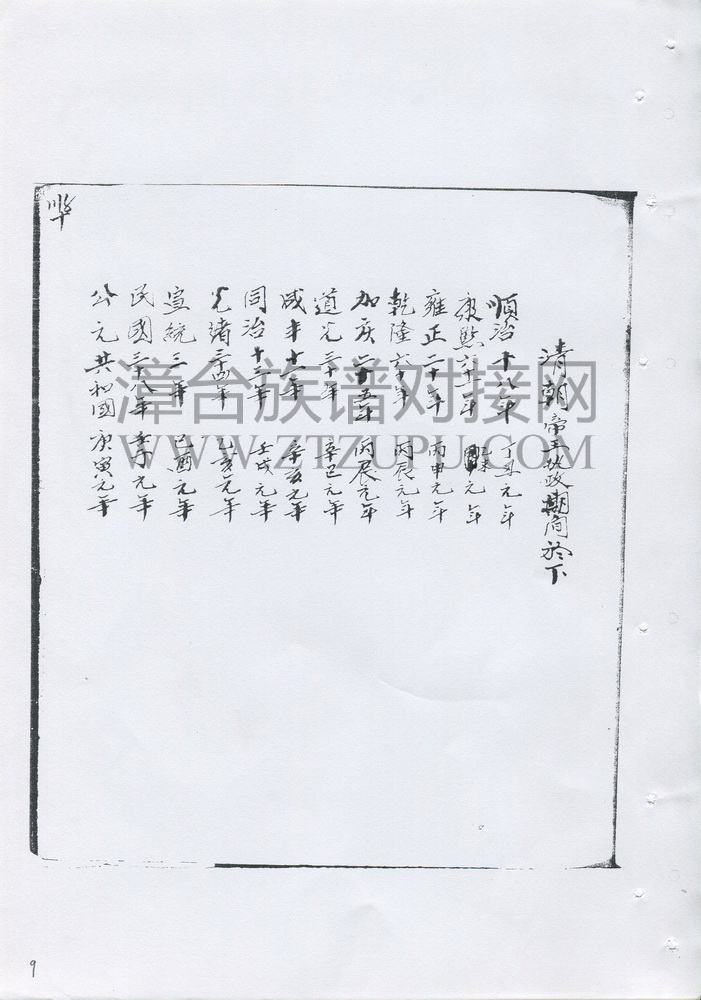 清朝帝王执政期间於下
順治十八年 丁丑元年
康熙六十一年 元年
雍正二十年 丙申元年
乾隆六十年 丙辰元年
加庆二十五年 丙辰元年
道光三十年 辛巳元年
咸丰十一年 辛亥元年
同治十三年 壬戌元年
光緒三十四年 乙亥元年
宣統三年 己酉元年
民國三十八年 壬子元年
公元共和國 庚寅元年
漳台族谱对接网
WWW.ZTZUPU.COM
9